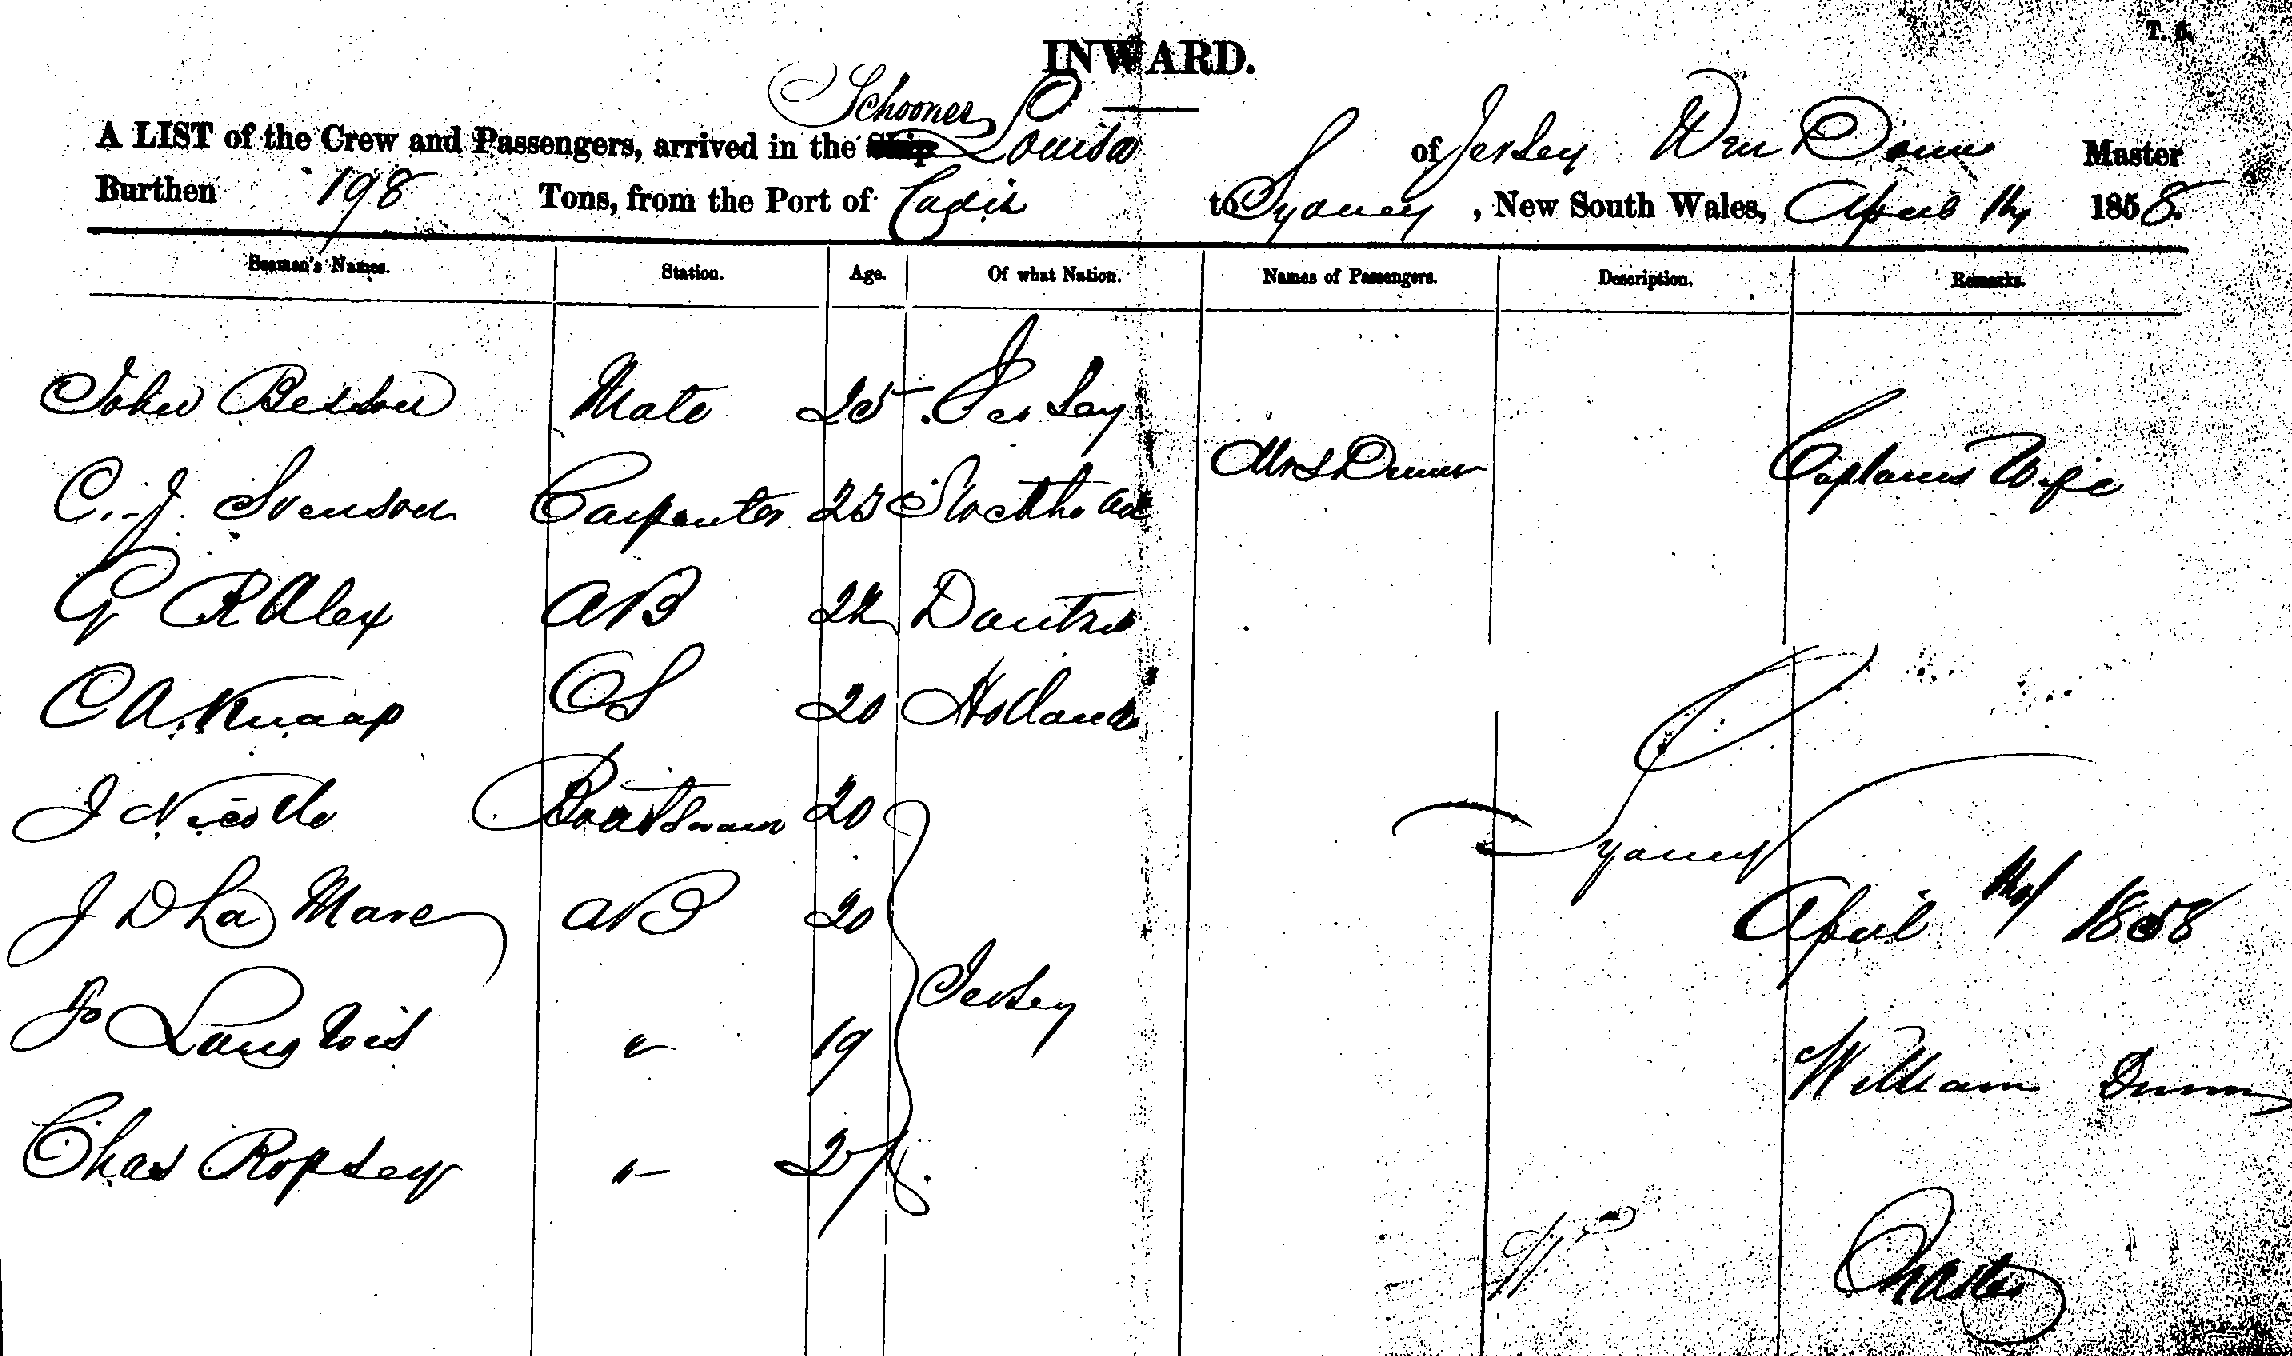 T. S.
INWARD.
Schooner
A LIST of the Crew and Passengers, arrived in the Ship Louisa of Jersey Wm Dunn Master
Burthen 198 Tons, from the Port of Cadiz to Sydney, New South Wales, April 14 1858.
Seamen's Names. Station. Age. Of what Nation. Names of Passengers. Description. Remarks.
John Besson Mate 25 Jersey
Mrs Dunn Captains Wife
C. J. Svenson Carpenter 25 Stockholm
G R Alex AB 22 Dantzic
C A. Knaap OS 20 Holland
J Nicolle Boatswain 20
Sydney
J D La Mare AB 20
April 14/ 1858
Jersey
J Langlois " 19
William Dunn
Chas Ropsey " 21
Master